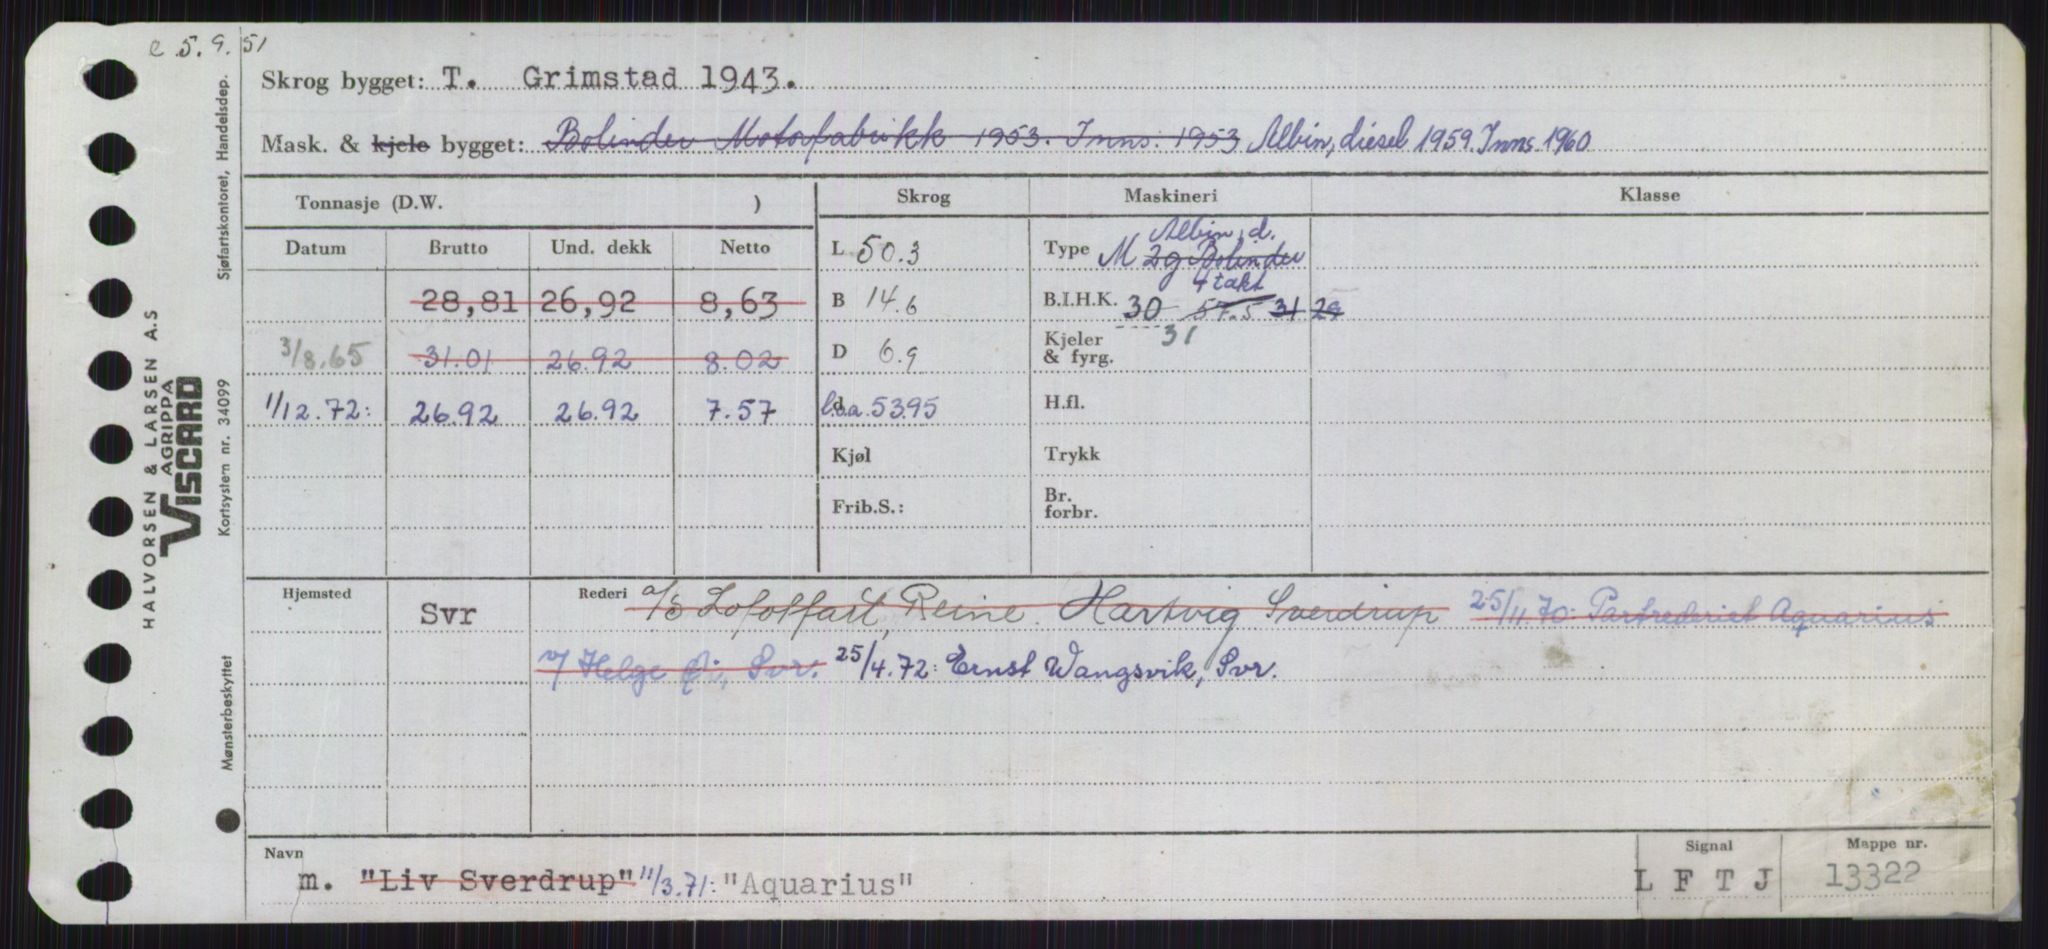 e 5.9.51
Skrog bygget: T. Grimstad 1943.
Mask. & kjele bygget: Bolinder Motorfabrikk 1953. Inns. 1953 Albin, diesel 1959. Inns. 1960
Tonnasje (D.W. )
Skrog Maskineri Klasse
Datum Brutto Und. dekk Netto
L 50.3
Type M 2g Bolinder Albin, d.
4 takt
28,81 26,92 8,63
B 14.6
B.I.H.K. 30 57.5 31 29
31
3/8.65 31.01 26.92 8.02
D 6.9
Kjeler
& fyrg.
1/12.72: 26.92 26.92 7.57
d l.o.a. 53.95
H.fl.
Kjøl
Trykk
Frib.S.:
Br.
forbr.
Hjemsted Svr
Rederi a/s Lofotfart, Reine. Hartvig Sverdrup 25/11.70: Partrederiet Aquarius
v/ Helge Øi, Svr. 25/4.72: Ernst Wangsvik, Svr.
Navn
m. "Liv Sverdrup" 11/3.71: "Aquarius"
Signal
L F T J
Mappe nr.
13322
HALVORSEN & LARSEN A.S
AGRIPPA
VISCARD
Mønsterbeskyttet Kortsystem nr. 34099 Sjøfartskontoret, Handelsdep.